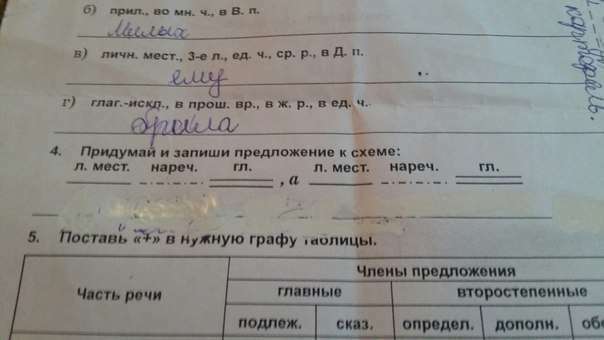 б) прил., во мн. ч., в В. п.
милых
в) личн. мест., 3-е л., ед. ч., ср. р., в Д. п.
ему
г) глаг.-искл., в прош. вр., в ж. р., в ед. ч.
брила
4. Придумай и запиши предложение к схеме:
л. мест. нареч. гл. , а л. мест. нареч. гл.
5. Поставь «+» в нужную графу таблицы.
Часть речи
Члены предложения
главные второстепенные
подлеж. сказ. определ. дополн. обс